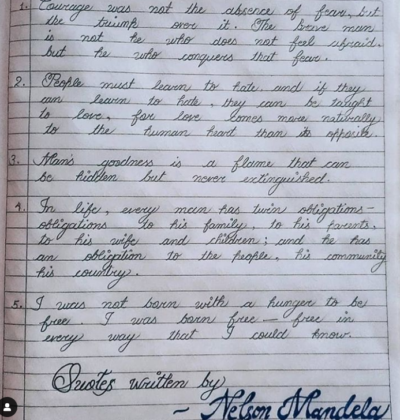 1. Courage was not the absence of fear, but
the triumph over it. The brave man
is not he who does not feel afraid,
but he who conquers that fear.
2. People must learn to hate. and if they
can learn to hate, they can be taught
to love, for love comes more naturally
to the human heart than its opposite.
3. Man's goodness is a flame that can
be hidden but never extinguished.
4. In life, every man has twin obligations-
obligations to his family, to his parents,
to his wife and children; and he has
an obligation to the people, his community
his country.
5. I was not born with a hunger to be
free. I was born free - free in
every way that I could know.
Quotes written by
- Nelson Mandela